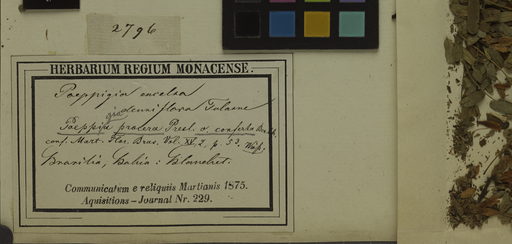 2796
HERBARIUM REGIUM MONACENSE.
Poeppigia excelsa
densiflora Tulasne
Poeppigia procera Presl. α conferta Benth.
conf. Mart. Flor. Bras. Vol. XV, 2, p. 53.
Brasilia, Bahia: Blanchet.
Communicatum e reliquiis Martianis 1875.
Aquisitions-Journal Nr. 229.